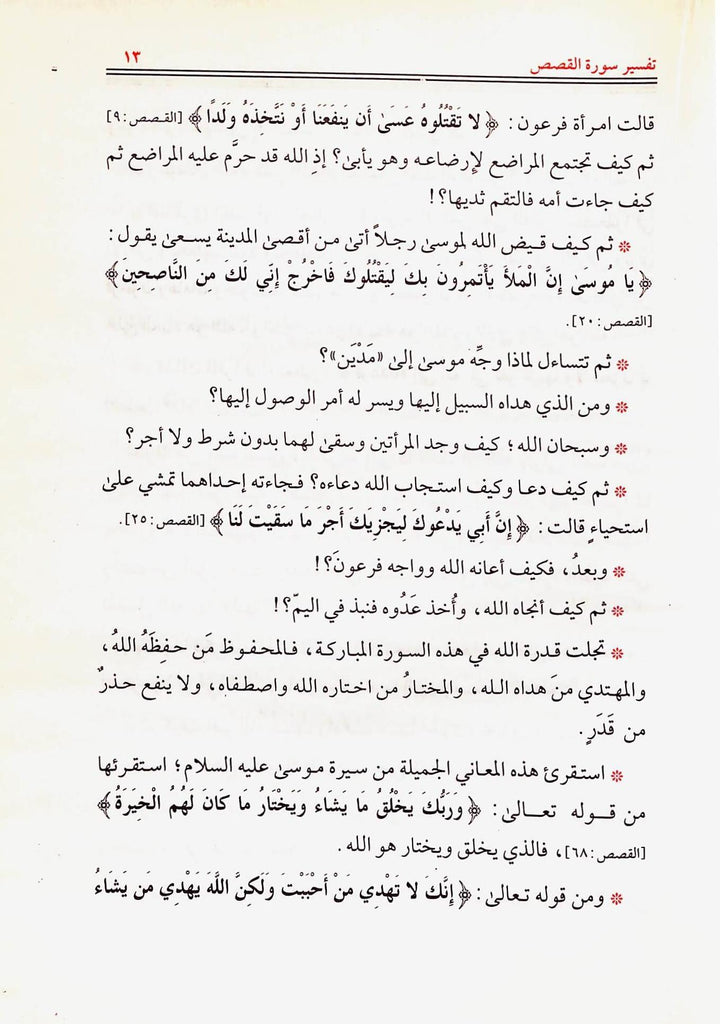 تفسير سورة القصص
١٣
قالت امرأة فرعون: ﴿لا تَقْتُلُوهُ عَسَىٰ أَن يَنفَعَنَا أَوْ نَتَّخِذَهُ وَلَدًا﴾ [القصص: ٩]
ثم كيف تجتمع المراضع لإرضاعه وهو يأبىٰ؟ إذِ الله قد حرَّم عليه المراضع ثم
كيف جاءت أمه فالتقم ثديها؟!
* ثم كيف قيض الله لموسىٰ رجلاً أتىٰ من أقصىٰ المدينة يسعىٰ يقول:
﴿يَا مُوسَىٰ إِنَّ الْمَلأَ يَأْتَمِرُونَ بِكَ لِيَقْتُلُوكَ فَاخْرُجْ إِنِّي لَكَ مِنَ النَّاصِحِينَ﴾
[القصص: ٢٠].
* ثم تتساءل لماذا وجِّه موسىٰ إلىٰ «مَدْيَن»؟
* ومن الذي هداه السبيل إليها ويسر له أمر الوصول إليها؟
* وسبحان الله؛ كيف وجد المرأتين وسقىٰ لهما بدون شرط ولا أجر؟
* ثم كيف دعا وكيف استجاب الله دعاءه؟ فجاءته إحداهما تمشي علىٰ
استحياءٍ قالت: ﴿إِنَّ أَبِي يَدْعُوكَ لِيَجْزِيَكَ أَجْرَ مَا سَقَيْتَ لَنَا﴾ [القصص: ٢٥].
* وبعدُ، فكيف أعانه الله وواجه فرعونَ؟!
* ثم كيف أنجاه الله، وأُخذ عَدُوه فنبذ في اليمّ؟!
* تجلت قدرة الله في هذه السورة المباركة، فالمحفوظ مَن حفِظَهُ اللهُ،
والمهتدي منَ هداه الله، والمختارُ من اختاره الله واصطفاه، ولا ينفع حذرٌ
من قَدَرٍ.
* استقرئ هذه المعاني الجميلة من سيرة موسىٰ عليه السلام؛ استقرئها
من قوله تعالىٰ: ﴿وَرَبُّكَ يَخْلُقُ مَا يَشَاءُ وَيَخْتَارُ مَا كَانَ لَهُمُ الْخِيَرَةُ﴾
[القصص: ٦٨]، فالذي يخلق ويختار هو الله.
* ومن قوله تعالىٰ: ﴿إِنَّكَ لا تَهْدِي مَنْ أَحْبَبْتَ وَلَكِنَّ اللَّهَ يَهْدِي مَن يَشَاءُ